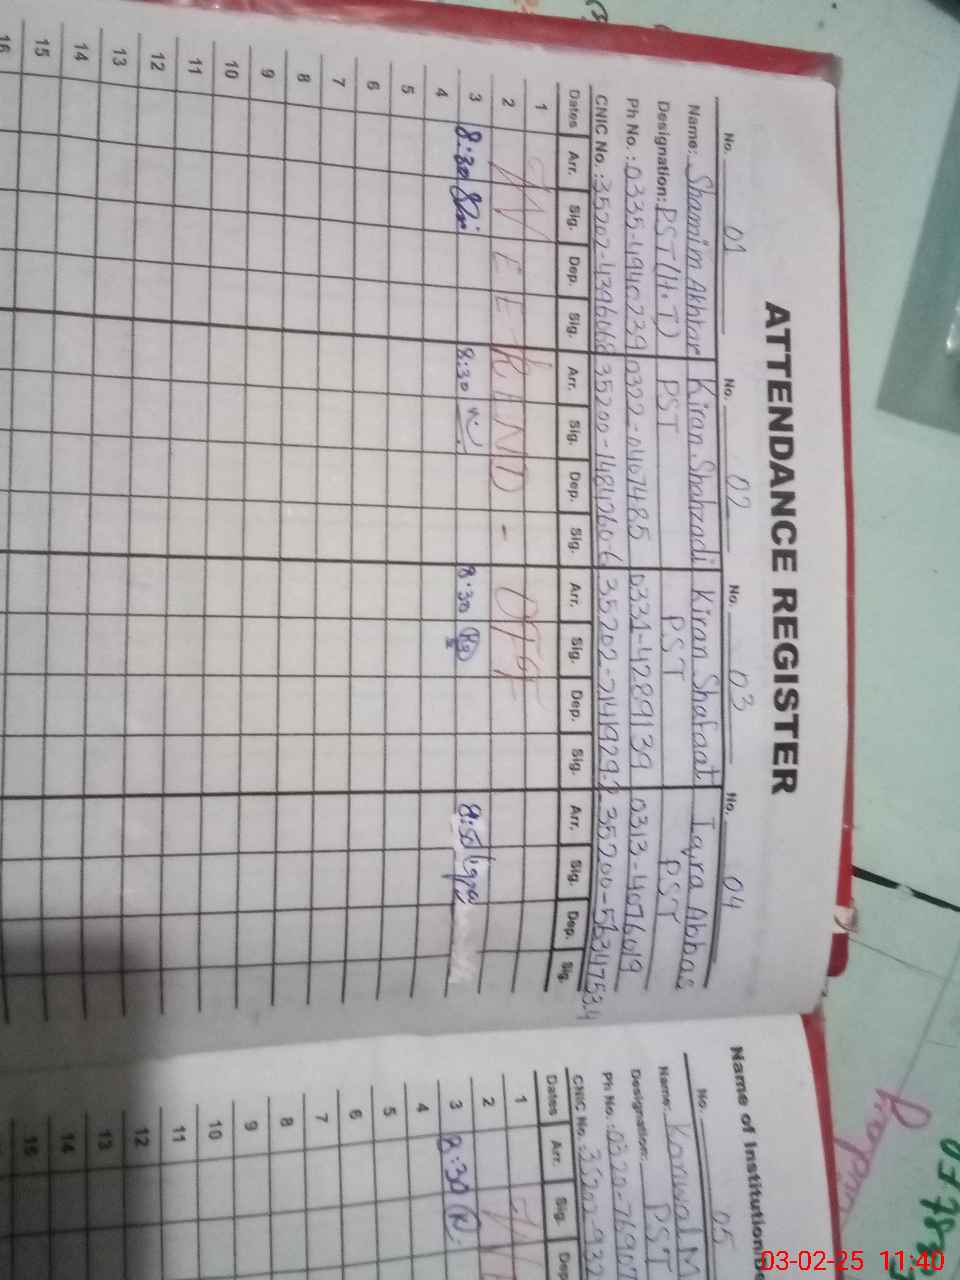 ATTENDANCE REGISTER
No. 01 No. 02 No. 03 No. 04
Name: Shamim Akhtar Kiran Shahzadi Kiran Shafaat Iqra Abbas
Designation: PST (H.T) PST PST PST
Ph No.: 0335-4940239 0322-0407485 0331-4289139 0313-4076019
CNIC No.: 35202-4396068 35200-1484260-6 35202-7141929-2
Dates Arr. Sig. Dep. Sig. Arr. Sig. Dep. Sig. Arr. Sig. Dep. Sig. Arr. Sig. Dep. Sig.
1
2 WEEKEND - OFF
3 8:30 8:30 8:30 8:30
4
5
6
7
8
9
10
11
12
13
14
15
16
Name of Institution/De
No. 05
Name: Kanwal M
Designation: PST
Ph No.: 0320-76907
CNIC No.: 35202-932
Dates Arr. Sig. Dep
1
2
3 8:30
4
5
6
7
8
9
10
11
12
13
14
15
03-02-25 11:40